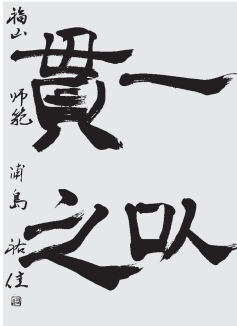 一以
貫之
福山 師範 浦島 祐佳